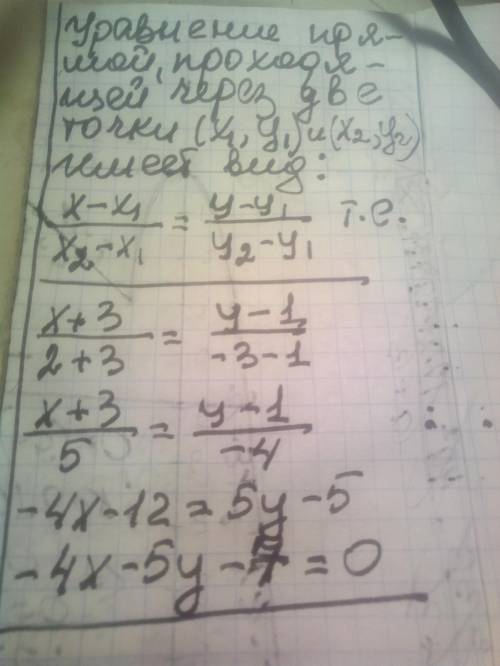 Уравнение пря-
мой, проходя-
щей через две
точки (x₁, y₁) и (x₂, y₂)
имеет вид:
(x-x₁)/(x₂-x₁) = (y-y₁)/(y₂-y₁) т.е.
(x+3)/(2+3) = (y-1)/(-3-1)
(x+3)/5 = (y-1)/-4
-4x-12=5y-5
-4x-5y-7=0